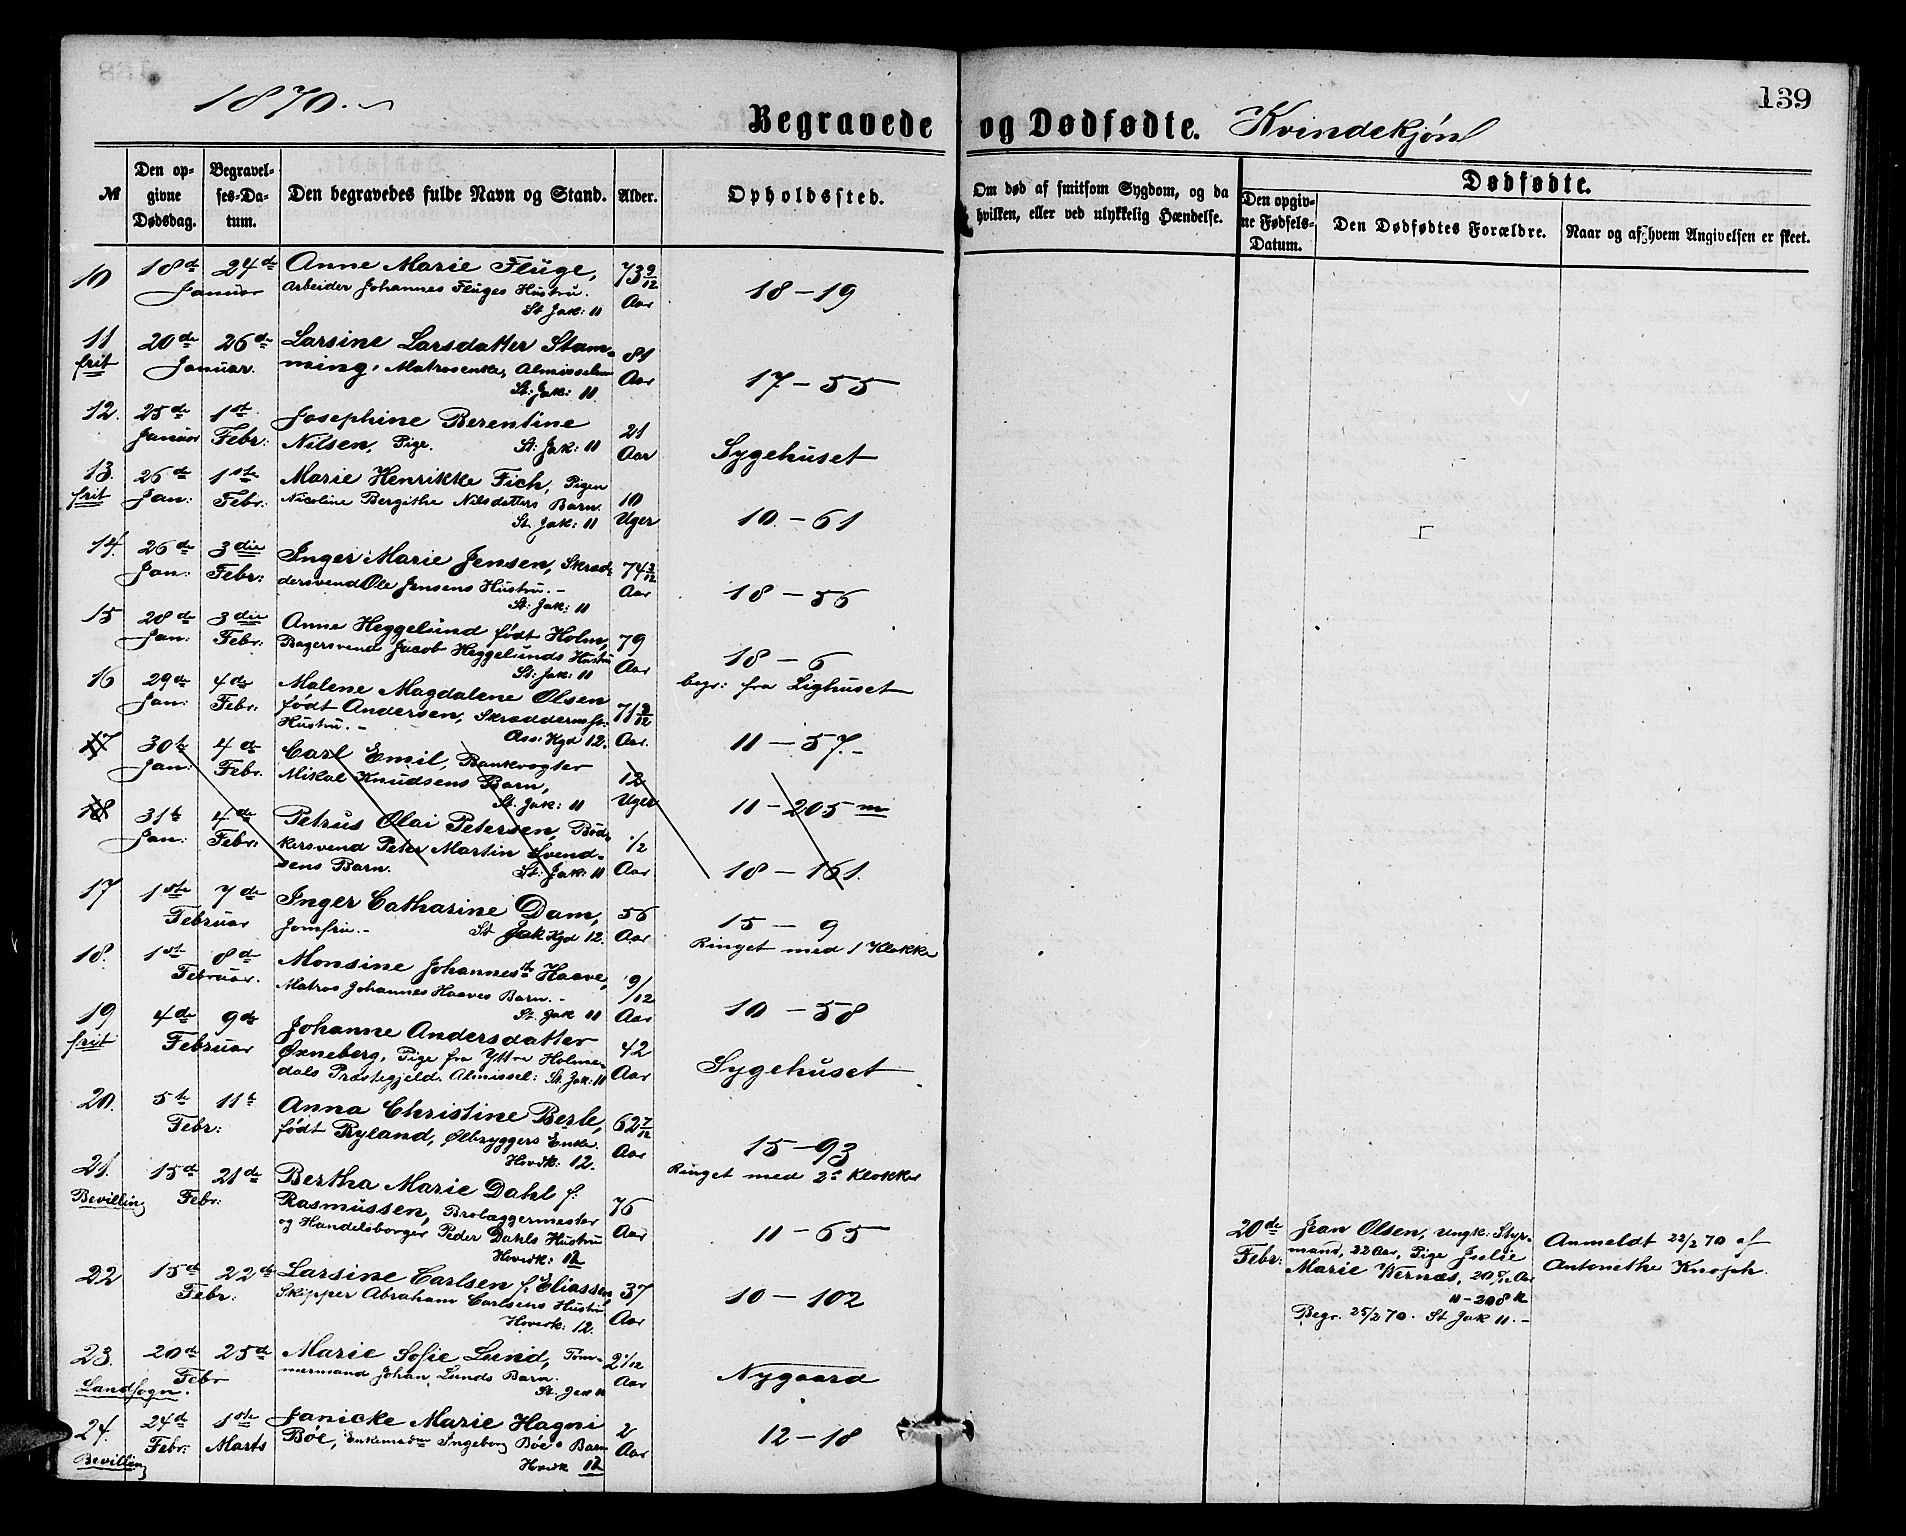 1870.
Begravede og Dødfødte. Kvindekjøn
139
№
Den opgivne Dødsdag.
Begravelses-Datum.
Den begravedes fulde Navn og Stand.
Alder.
Opholdssted.
Om død af smitsom Sygdom, og da hvilken, eller ved ulykkelig Hændelse.
Dødfødte.
Den opgivne Fødsels-Datum.
Den Dødfødtes Forældre.
Naar og af hvem Angivelsen er skeet.
10 18de 24de Anne Marie Fluge, 73 9/12
Januar Arbeider Johannes Fluges Hustru. Aar 18-19
St Jak: 11
11 20de 26de Larsine Larsdatter Stam- 81
frit Januar. ming, Matrosenke, Aar 17-55
St: Jak: 11.
12. 25de 1st Josephine Berentine 21
Januar Febr: Nilsen, Pige. St: Jak: 11 Aar Sygehuset
13. 26de 1ste Marie Henrikke Fich, Pigen 10
frit Jan: Febr. Nicoline Bergithe Nilsdatters Barn. Uger 10-61
St. Jak: 11
14. 26de 3die Inger Marie Jensen, Skræd- 74 3/12
Jan: Febr: dersvend Ole Jensens Hustru.- Aar 18-56
St: Jak: 11
15 28de 3die Anne Heggelund født Holm, 79
Jan: Febr: Bagersvend Jacob Heggelunds Hustru Aar 18-6
St: Jak: 11 begr: fra Lighuset
16 29de 4de Malene Magdalene Olsen
Jan: Febr: født Andersen, 71 9/12
Hustru.- Ass: Kgd 12. Aar. 11-57.-
17 30te 4de Carl Emil, Bankvogter
Jan: Febr. Mikal Knudsens Barn, 12
St. Jak: 11 Uger 11-205 m
18 31te 4de Petrus Olai Petersen, Bød- 1/2
Jan: Febr: kersvend Peter Martin Svend- Aar 18-161.
sens Barn. St. Jak: 11
17 1ste 7de Inger Catharine Dam, 56 15-9
Februar Jomfru.- St Jak Kgd 12. Aar Ringet med 1 Klokke
18. 1ste 8de Monsine Johannesdt Haave, 9/12
Februar. Matros Johannes Haaves Barn.- Aar 10-58
St. Jak 11
19 4de 9de Johanne Andersdatter 42
frit Februar Øxneberg, Pige fra Yttre Holme- Aar Sygehuset
dals Præstegjeld. Almissel: St. Jak: 11
20. 5te 11te Anna Christine Berle, 62 7/12
Febr: født Ryland, Ølbryggers Enke. Aar 15-93
Hovdk: 12. Ringet med 2de Klokker
21. 15de 21de Bertha Marie Dahl f: 76
Bevilling Febr: Rasmussen, Brolæggermester Aar 11-65
og Handelsborger Peder Dahls Hustru
Hovedk: 12
22 15de 22de Larsine Carlsen f. Eliassen 37
Febr: Skipper Abraham Carlsens Hustru Aar 10-102
Hovedk: 12.
23. 20de 25de Marie Sofie Lund, Tøm- 2 1/12
Landsogn. Febr mermand Johan Lunds Barn. Aar Nygaard
St. Jak 11
24. 24de 1ste Janicke Marie Hagni 2
Bevilling Febr: Marts Bøe, Ingeborg Bøes Barn Aar 12-18
Hovdk 12
20de Febr: Jean Olsen, Ungk: Styr-
mand, 22 Aar, Pige Julie
Marie Wernæs, 20 Aar
11-208 k
Begr. 25/2 70. St Jak 11.-
Anmeldt 22/2 70 af
Antonethe Knoph.